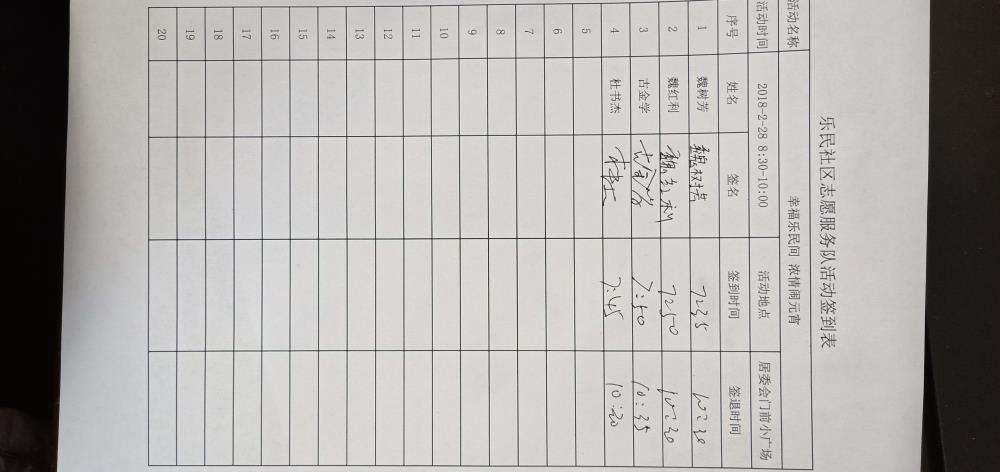 乐民社区志愿服务队活动签到表
活动名称 幸福乐民间 浓情闹元宵
活动时间 2018-2-28 8:30-10:00 活动地点 居委会门前小广场
序号 姓名 签名 签到时间 签退时间
1 魏树芳 魏树芳 7:35 10:30
2 魏红利 魏红利 7:50 10:30
3 古金学 古金学 7:50 10:35
4 杜书杰 7:45 10:20
5
6
7
8
9
10
11
12
13
14
15
16
17
18
19
20